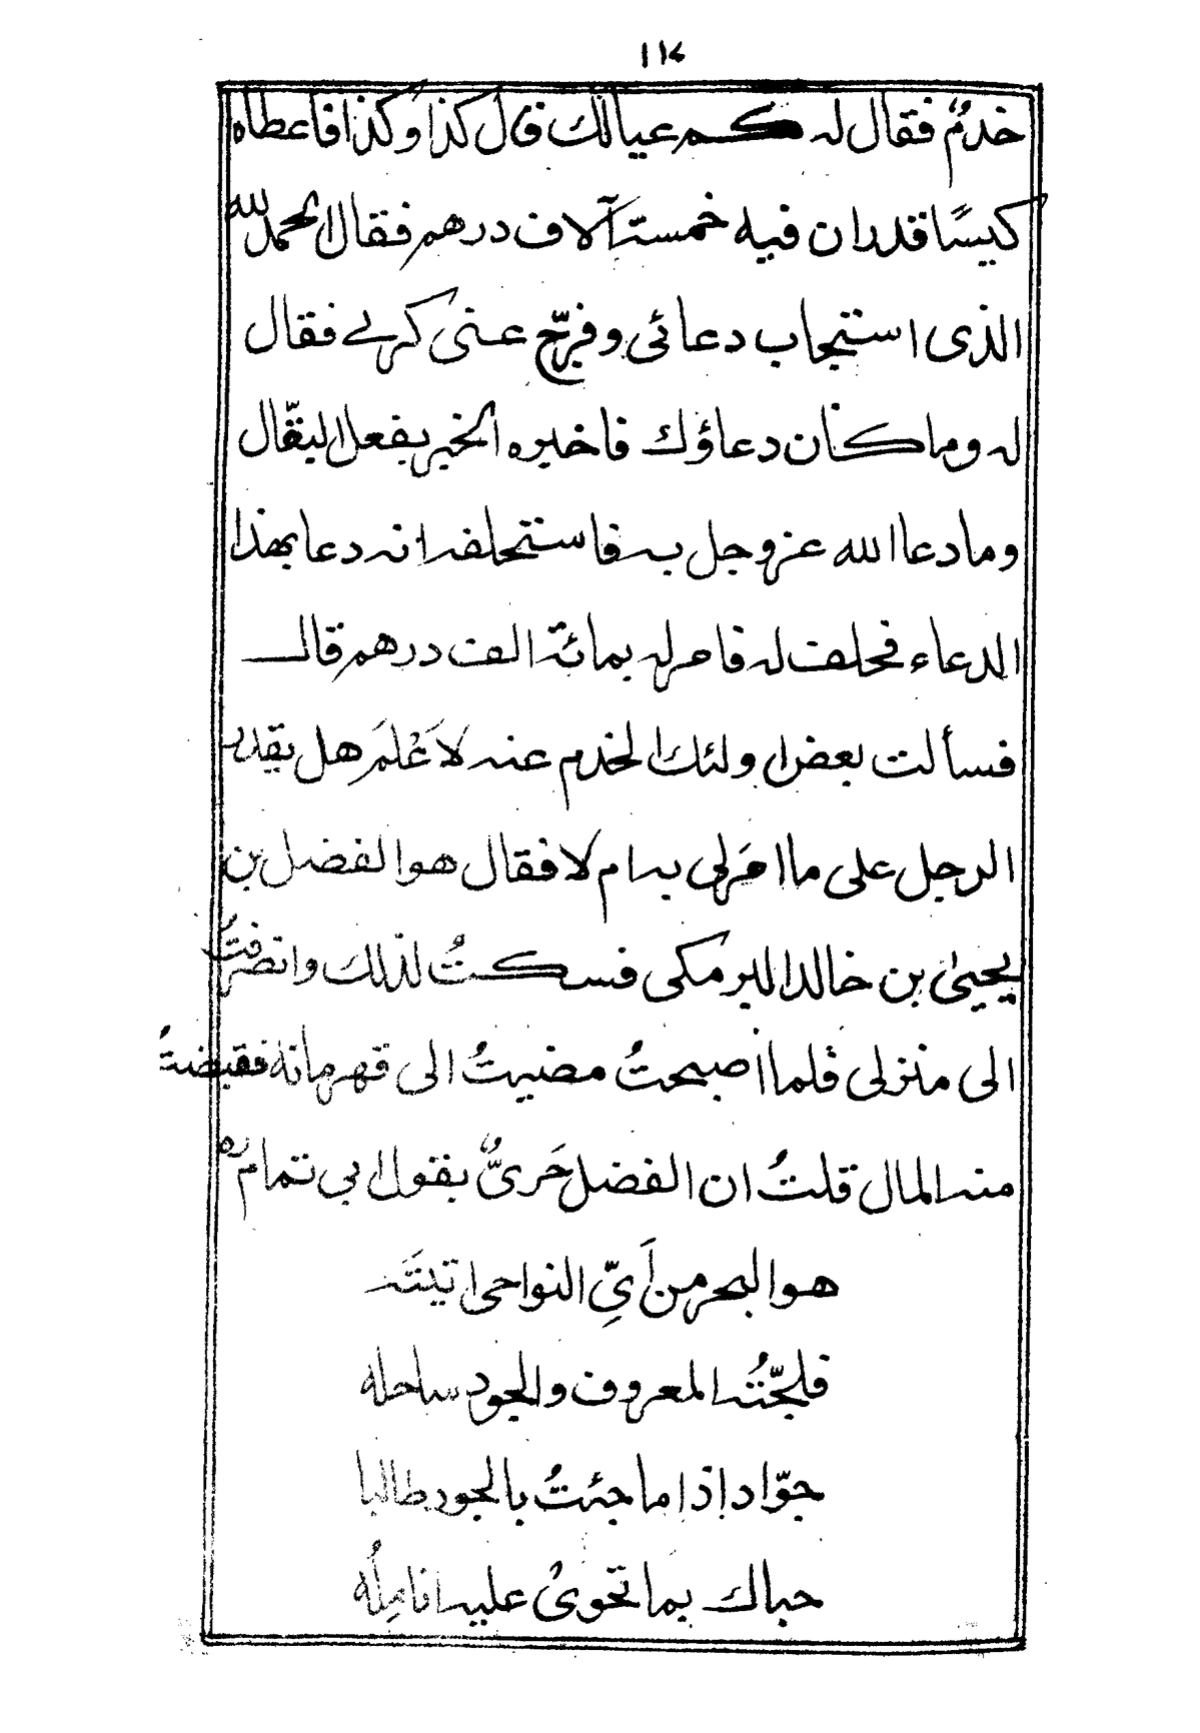 ١١٤
خدمٌ فقال له كم عيالك قال كذا وكذا فاعطاه
كيسًا قدران فيه خمسة آلاف درهم فقال الحمد لله
الذى استجاب دعائى وفرّج عنى كربے فقال
له وما كان دعاؤك فاخبره الخبر بفعل البقّال
وما دعا الله عز وجل به فاستحلفه انه دعا بهذا
الدعاء فحلف له فامر له بمائة الف درهم قال
فسألت بعض اولئك الخدم عنه لاَعْلَمَ هل يقدر
الرجل على ما امَر لى به ام لا فقال هو الفضل بن
يحيىٰ بن خالد البرمكى فسكتُ لذلك وانصرفتُ
الى منزلى فلما اصبحتُ مضيتُ الى قهرمانه فقبضتُ
منه المال قلتُ ان الفضل حَرىٌّ بقول ابي تمام ره
هو البحر من اَىِّ النواحى اتيتَه
فلجّتُه المعروف والجود ساحله
جوّاد اذا ما جئتُ بالجود طالبا
حباك بما تحوىٰ عليه انامِلُه